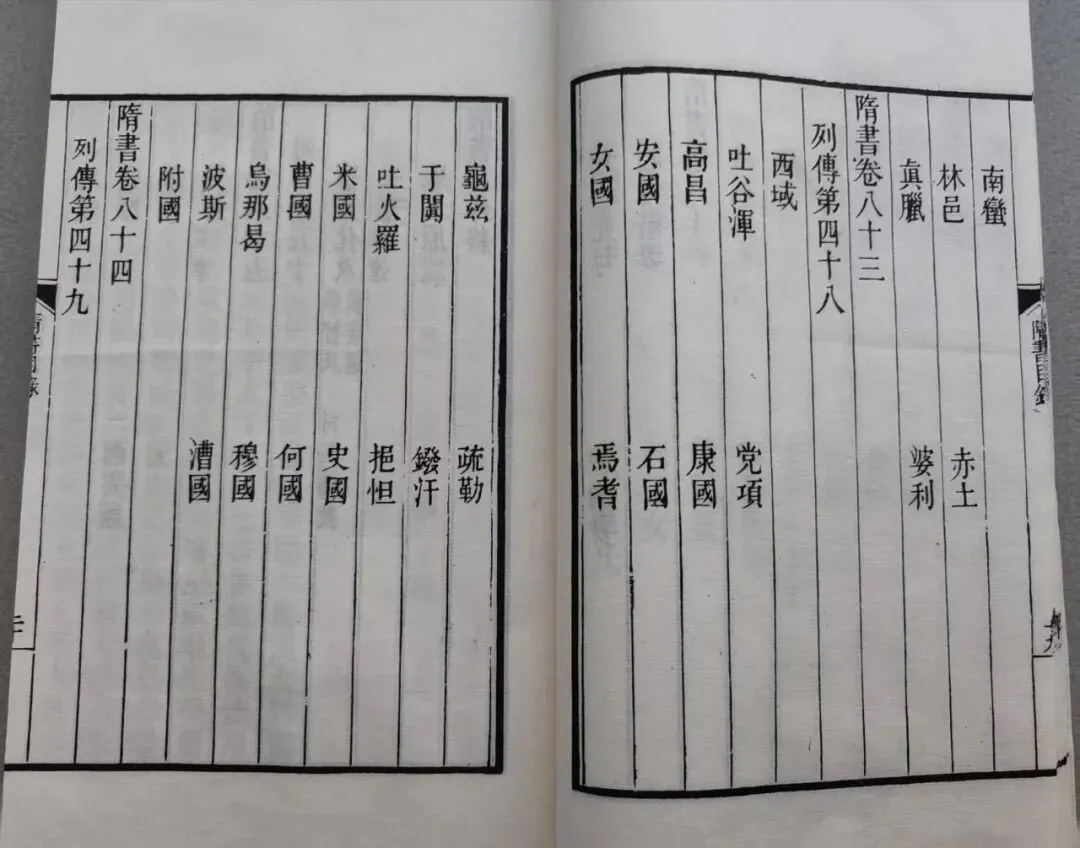 隋書目錄
南蠻
林邑 赤土
眞臘 婆利
隋書卷八十三
列傳第四十八
西域
吐谷渾 党項
高昌 康國
安國 石國
女國 焉耆
龜兹 疏勒
于闐 鏺汗
吐火羅 挹怛
米國 史國
曹國 何國
烏那曷 穆國
波斯 漕國
附國
隋書卷八十四
列傳第四十九